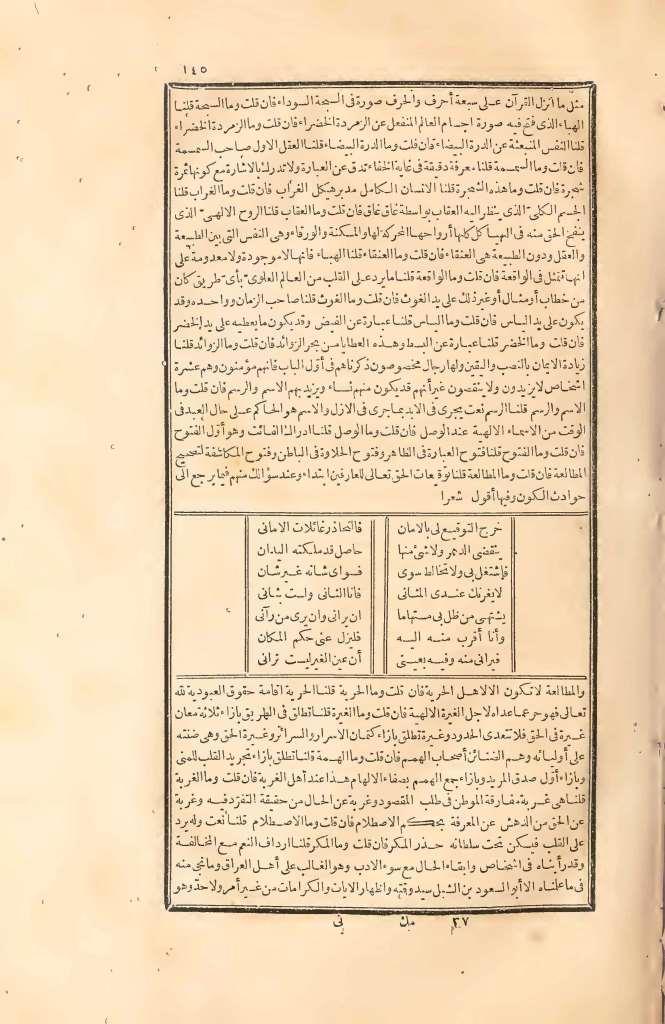 ١٤٥
مثل ما أنزل القرآن على سبعة أحرف والحرف صورة فى السبحة السوداء فان قلت وما السبحة قلنا
الهباء الذى فتح فيه صورة اجسام العالم المنفعل عن الزمردة الخضراء فان قلت وما الزمردة الخضراء
قلنا النفس المنبعثة عن الدرة البيضاء فان قلت وما الدرة البيضاء قلنا العقل الاول صاحب السمسمة
فان قلت وما السمسمة قلنا معرفة دقيقة فى غاية الخفاء تدق عن العبارة ولا تدرك بالاشارة مع كونها ثمرة
شجرة فان قلت وما هذه الشجرة قلنا الانسان الكامل مدبر هيكل الغراب فان قلت وما الغراب قلنا
الجسم الكلى الذى ينظر اليه العقاب بواسطة غاق غاق فان قلت وما العقاب قلنا الروح الالهى الذى
ينفخ الحق منه فى الهياكل كلها أرواحها المحركة لها والمسكنة والورقاء وهى النفس التى بين الطبيعة
والعقل ودون الطبيعة هى العنقاء فان قلت وما العنقاء قلنا الهباء فانها لا موجودة ولا معدومة على
انها تتمثل فى الواقعة فان قلت وما الواقعة قلنا ما يرد على القلب من العالم العلوى بأى طريق كان
من خطاب أو مثال أو غير ذلك على يد الغوث فان قلت وما الغوث قلنا صاحب الزمان وواحده وقد
يكون على يد الياس فان قلت وما الياس قلنا عبارة عن القبض وقد يكون ما يعطيه على يد الخضر
فان قلت وما الخضر قلنا عبارة عن البسط وهذه العطايا من بحر الزوائد فان قلت وما الزوائد قلنا
زيادة الايمان بالغيب واليقين ولها رجال مخصوصون ذكرناهم فى أول الباب فانهم مؤمنون وهم عشرة
اشخاص لا يزيدون ولا ينقصون غير أنهم قد يكون منهم نساء ويزيد بهم الاسم والرسم فان قلت وما
الاسم والرسم قلنا الرسم نعت يجرى فى الابد بما جرى فى الازل والاسم هو الحاكم على حال العبد فى
الوقت من الاسماء الالهية عند الوصل فان قلت وما الوصل قلنا ادراك الفائت وهو أول الفتوح
فان قلت وما الفتوح قلنا فتوح العبارة فى الظاهر وفتوح الحلاوة فى الباطن وفتوح المكاشفة لتصحيح
المطالعة فان قلت وما المطالعة قلنا توقيعات الحق تعالى للعارفين ابتداء وعند سؤالك منهم فيما يرجع الى
حوادث الكون وفيها أقول شعرا
خرج التوقيع لى بالامان فاتخاذر غائلات الامانى
ينقضى الدهر ولا شئ منها حاصل قد ملكته اليدان
فاشتغل بى ولا تخالط سوى فسواى شانه غير شان
لا يغرنك عندى المثانى فانا الثانى ولست بثانى
يشتهى من ظل بى مستهاما ان يرانى وان يرى من رآنى
وأنا أقرب منه اليه فليزل عنى حكم المكان
فيرانى منه وفيه بعينى أن عين الغير ليست ترانى
والمطالعة لا تكون الا لاهل الحرية فان قلت وما الحرية قلنا الحرية اقامة حقوق العبودية لله
تعالى فهو حر عما عداه لاجل الغيرة الالهية فان قلت وما الغيرة قلنا تطلق فى الطريق بازاء ثلاثة معان
غيرة فى الحق فلا تتعدى الحدود وغيرة تطلق بازاء كتمان الاسرار والسرائر وغيرة الحق وهى ضنته
على أوليائه وهم الضنائن أصحاب الهمم فان قلت وما الهمة قلنا تطلق بازاء تجريد القلب للمنى
وبازاء أول صدق المريد وبازاء جمع الهمم بصفاء الالهام هذا عند أهل الغربة فان قلت وما الغربة
قلنا هى غربة مفارقة الموطن فى طلب المقصود وغربة عن الحال من حقيقة التفرد فيه وغربة
عن الحق من الدهش عن المعرفة بحكم الاصطلام فان قلت وما الاصطلام قلنا نعت وله يرد
على القلب فيسكن تحت سلطانه حذر المكر فان قلت وما المكر قلنا ارداف النعم مع المخالفة
وقد رأيناه فى اشخاص وابقاء الحال مع سوء الادب وهو الغالب على أهل العراق وما نجى منه
فى ما علمناه الا أبو السعود بن الشبل سيد وقته واظهار الايات والكرامات من غير أمر ولا حد وهو
٢٧ مك نى